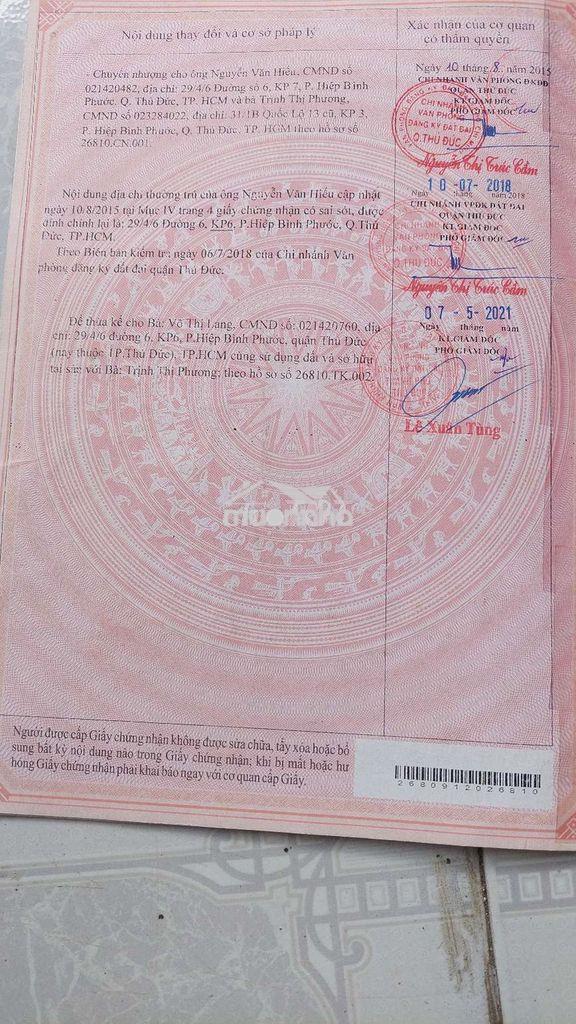 Nội dung thay đổi và cơ sở pháp lý
Xác nhận của cơ quan
có thẩm quyền
- Chuyển nhượng cho ông Nguyễn Văn Hiếu, CMND số
021420482, địa chỉ: 29/4/6 Đường số 6, KP 7, P. Hiệp Bình
Phước, Q. Thủ Đức, TP. HCM và bà Trịnh Thị Phương,
CMND số 023284022, địa chỉ: 31.1B Quốc Lộ 13 cũ, KP 3,
P. Hiệp Bình Phước, Q. Thủ Đức, TP. HCM theo hồ sơ số
26810.CN.001.
Ngày 10 tháng 8 năm 2015
CHI NHÁNH VĂN PHÒNG ĐKĐĐ
QUẬN THỦ ĐỨC
KT.GIÁM ĐỐC
PHÓ GIÁM ĐỐC
CHI NHÁNH
VĂN PHÒNG
ĐĂNG KÝ ĐẤT ĐAI
Q.THỦ ĐỨC
Nguyễn Thị Trúc Cầm
Nội dung địa chỉ thường trú của ông Nguyễn Văn Hiếu cập nhật
ngày 10/8/2015 tại Mục IV trang 4 giấy chứng nhận có sai sót, được
đính chính lại là: 29/4/6 Đường 6, KP6, P.Hiệp Bình Phước, Q.Thủ
Đức, TP.HCM.
Theo Biên bản kiểm tra ngày 06/7/2018 của Chi nhánh Văn
phòng đăng ký đất đai quận Thủ Đức.
10-07-2018
Ngày tháng năm 2018
CHI NHÁNH VPĐK ĐẤT ĐAI
QUẬN THỦ ĐỨC
KT.GIÁM ĐỐC
PHÓ GIÁM ĐỐC
Q.THỦ ĐỨC
Nguyễn Thị Trúc Cầm
Để thừa kế cho Bà: Võ Thị Lang, CMND số: 021420760, địa
chỉ: 29/4/6 đường 6, KP6, P.Hiệp Bình Phước, quận Thủ Đức
(nay thuộc TP.Thủ Đức), TP.HCM cùng sử dụng đất và sở hữu
tài sản với Bà: Trịnh Thị Phương; theo hồ sơ số 26810.TK.002.
07-5-2021
Ngày tháng năm
KT.GIÁM ĐỐC
PHÓ GIÁM ĐỐC
Lê Xuân Tùng
muonnha
Người được cấp Giấy chứng nhận không được sửa chữa, tẩy xóa hoặc bổ
sung bất kỳ nội dung nào trong Giấy chứng nhận; khi bị mất hoặc hư
hỏng Giấy chứng nhận phải khai báo ngay với cơ quan cấp Giấy.
2680912026810